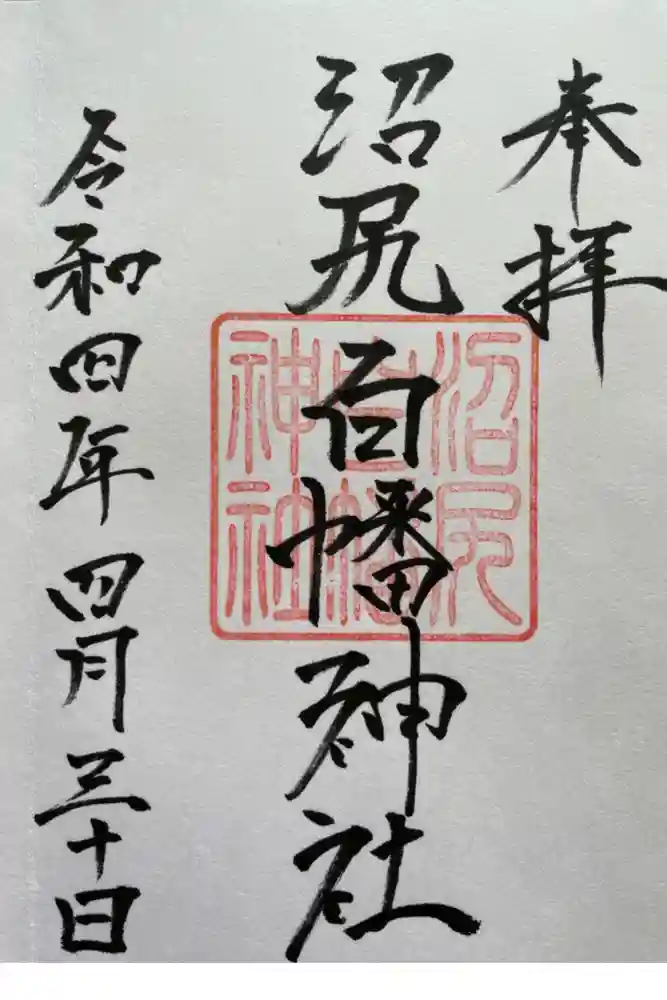 奉拝
沼尻百幡神社
沼尻百幡神社
令和四年四月三十日